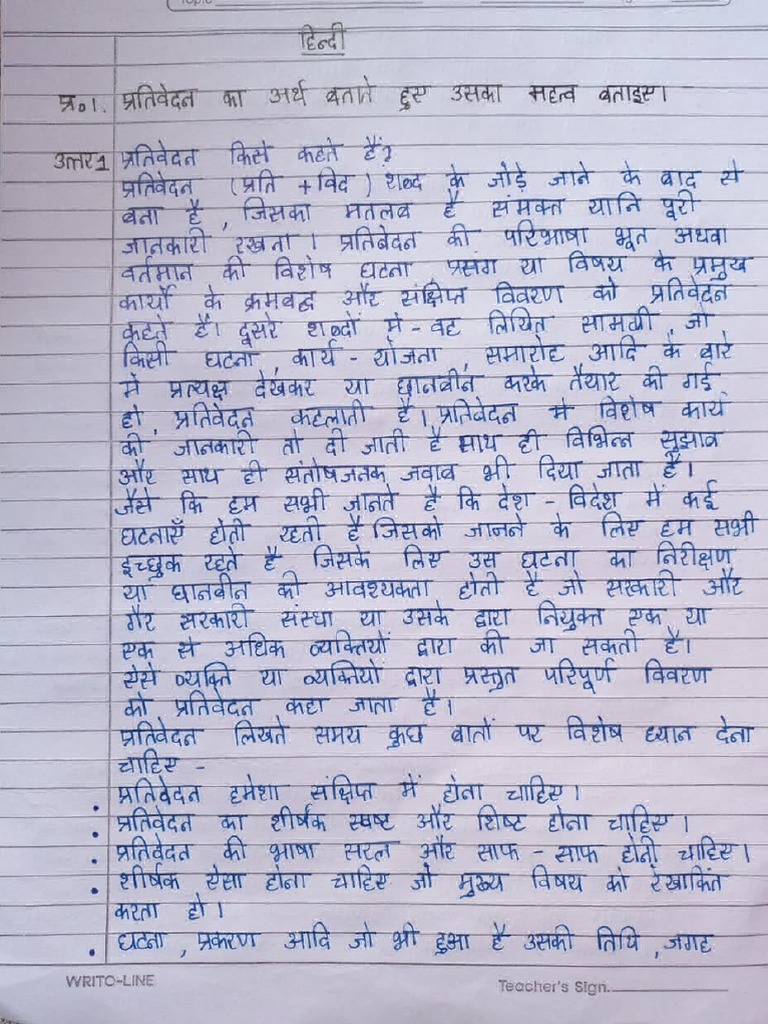 हिन्दी
प्र॰1. प्रतिवेदन का अर्थ बताते हुए उसका महत्व बताइए।
उत्तर 1 प्रतिवेदन किसे कहते हैं?
प्रतिवेदन (प्रति + विद) शब्द के जोड़े जाने के बाद से
बना है, जिसका मतलब है संमक्त यानि पूरी
जानकारी रखना। प्रतिवेदन की परिभाषा भूत अथवा
वर्तमान की विशेष घटना प्रसंग या विषय के प्रमुख
कार्यों के क्रमबद्ध और संक्षिप्त विवरण को प्रतिवेदन
कहते हैं। दूसरे शब्दों में - वह लिखित सामग्री, जो
किसी घटना, कार्य - योजना, समारोह आदि के बारे
में प्रत्यक्ष देखकर या छानबीन करके तैयार की गई
हो, प्रतिवेदन कहलाती है। प्रतिवेदन में विशेष कार्य
की जानकारी तो दी जाती है साथ ही विभिन्न सुझाव
और साथ ही संतोषजनक जवाब भी दिया जाता है।
जैसे कि हम सभी जानते है कि देश - विदेश में कई
घटनाएँ होती रहती है जिसको जानने के लिए हम सभी
इच्छुक रहते है जिसके लिए उस घटना का निरीक्षण
या छानबीन की आवश्यकता होती है जो सरकारी और
गैर सरकारी संस्था या उसके द्वारा नियुक्त एक या
एक से अधिक व्यक्तियों द्वारा की जा सकती है।
ऐसे व्यक्ति या व्यक्तियों द्वारा प्रस्तुत परिपूर्ण विवरण
को प्रतिवेदन कहा जाता है।
प्रतिवेदन लिखते समय कुछ बातों पर विशेष ध्यान देना
चाहिए -
• प्रतिवेदन हमेशा संक्षिप्त में होना चाहिए।
• प्रतिवेदन का शीर्षक स्पष्ट और शिष्ट होना चाहिए।
• प्रतिवेदन की भाषा सरल और साफ - साफ होनी चाहिए।
• शीर्षक ऐसा होना चाहिए जो मुख्य विषय को रेखांकित
करता हो।
• घटना, प्रकरण आदि जो भी हुआ है उसकी तिथि, जगह
WRITO-LINE
Teacher's Sign.